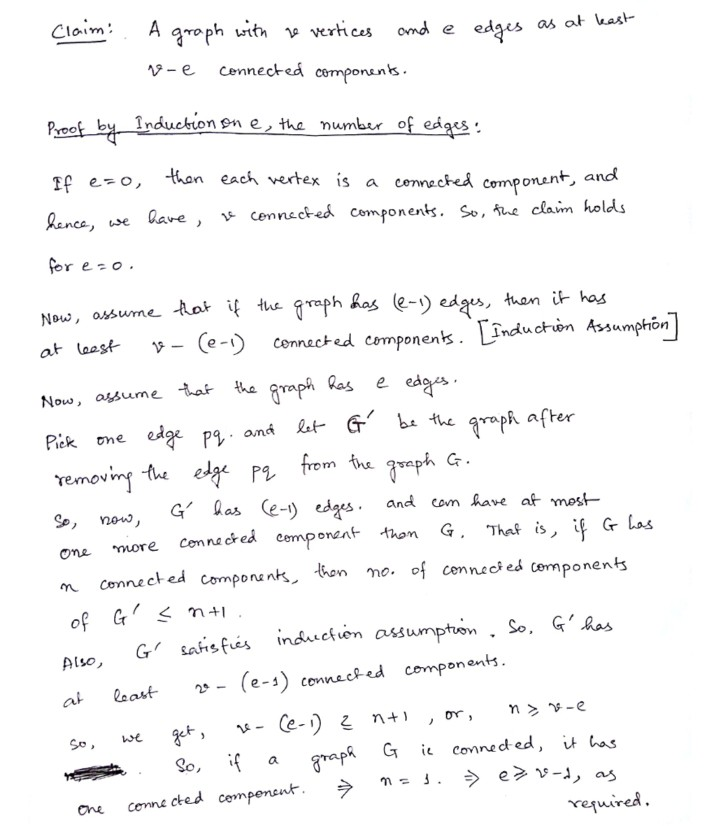 Claim: A graph with v vertices and e edges as at least
v-e connected components.
Proof by Induction on e, the number of edges:
If e=0, then each vertex is a connected component, and
hence, we have, v connected components. So, the claim holds
for e=0.
Now, assume that if the graph has (e-1) edges, then it has
at least v - (e-1) connected components. [Induction Assumption]
Now, assume that the graph has e edges.
Pick one edge pq. and let G′ be the graph after
removing the edge pq from the graph G.
So, now, G′ has (e-1) edges. and can have at most
one more connected component than G. That is, if G has
n connected components, then no. of connected components
of G′ ≤ n+1.
Also, G′ satisfies induction assumption. So, G′ has
at least v - (e-1) connected components.
So, we get, v - (e-1) ≤ n+1, or, n ≥ v-e
. So, if a graph G is connected, it has
one connected component. ⇒ n = 1. ⇒ e ≥ v-1, as
required.